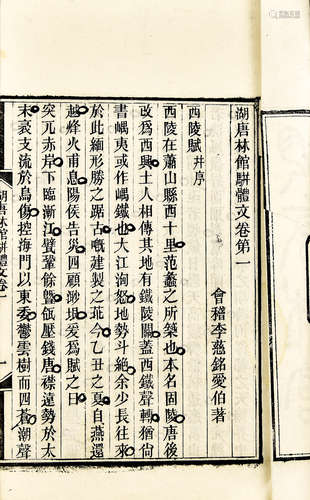 湖唐林館駢體文卷第一
會稽李慈銘愛伯著
西陵賦 幷序
西陵在蕭山縣西十里范蠡之所築也本名固陵唐後
改爲西興土人相傳其地有鐵陵關蓋西鐵聲轉猶尙
書嵎夷或作嵎鐵也大江洶怒地勢斗絶余少長往來
於此緬形勝之踞古嘅建製之今乙丑之夏自燕還
越烽火甫息陽侯告災四顧渺垠爰爲賦之曰
突兀赤岸下臨漸江甓鞏餘暨瓴壓錢唐襟遠勢於太
末裒支流於烏傷控海門以東委鬱雲樹而四蒼潮聲
湖唐林館駢體文卷一
一